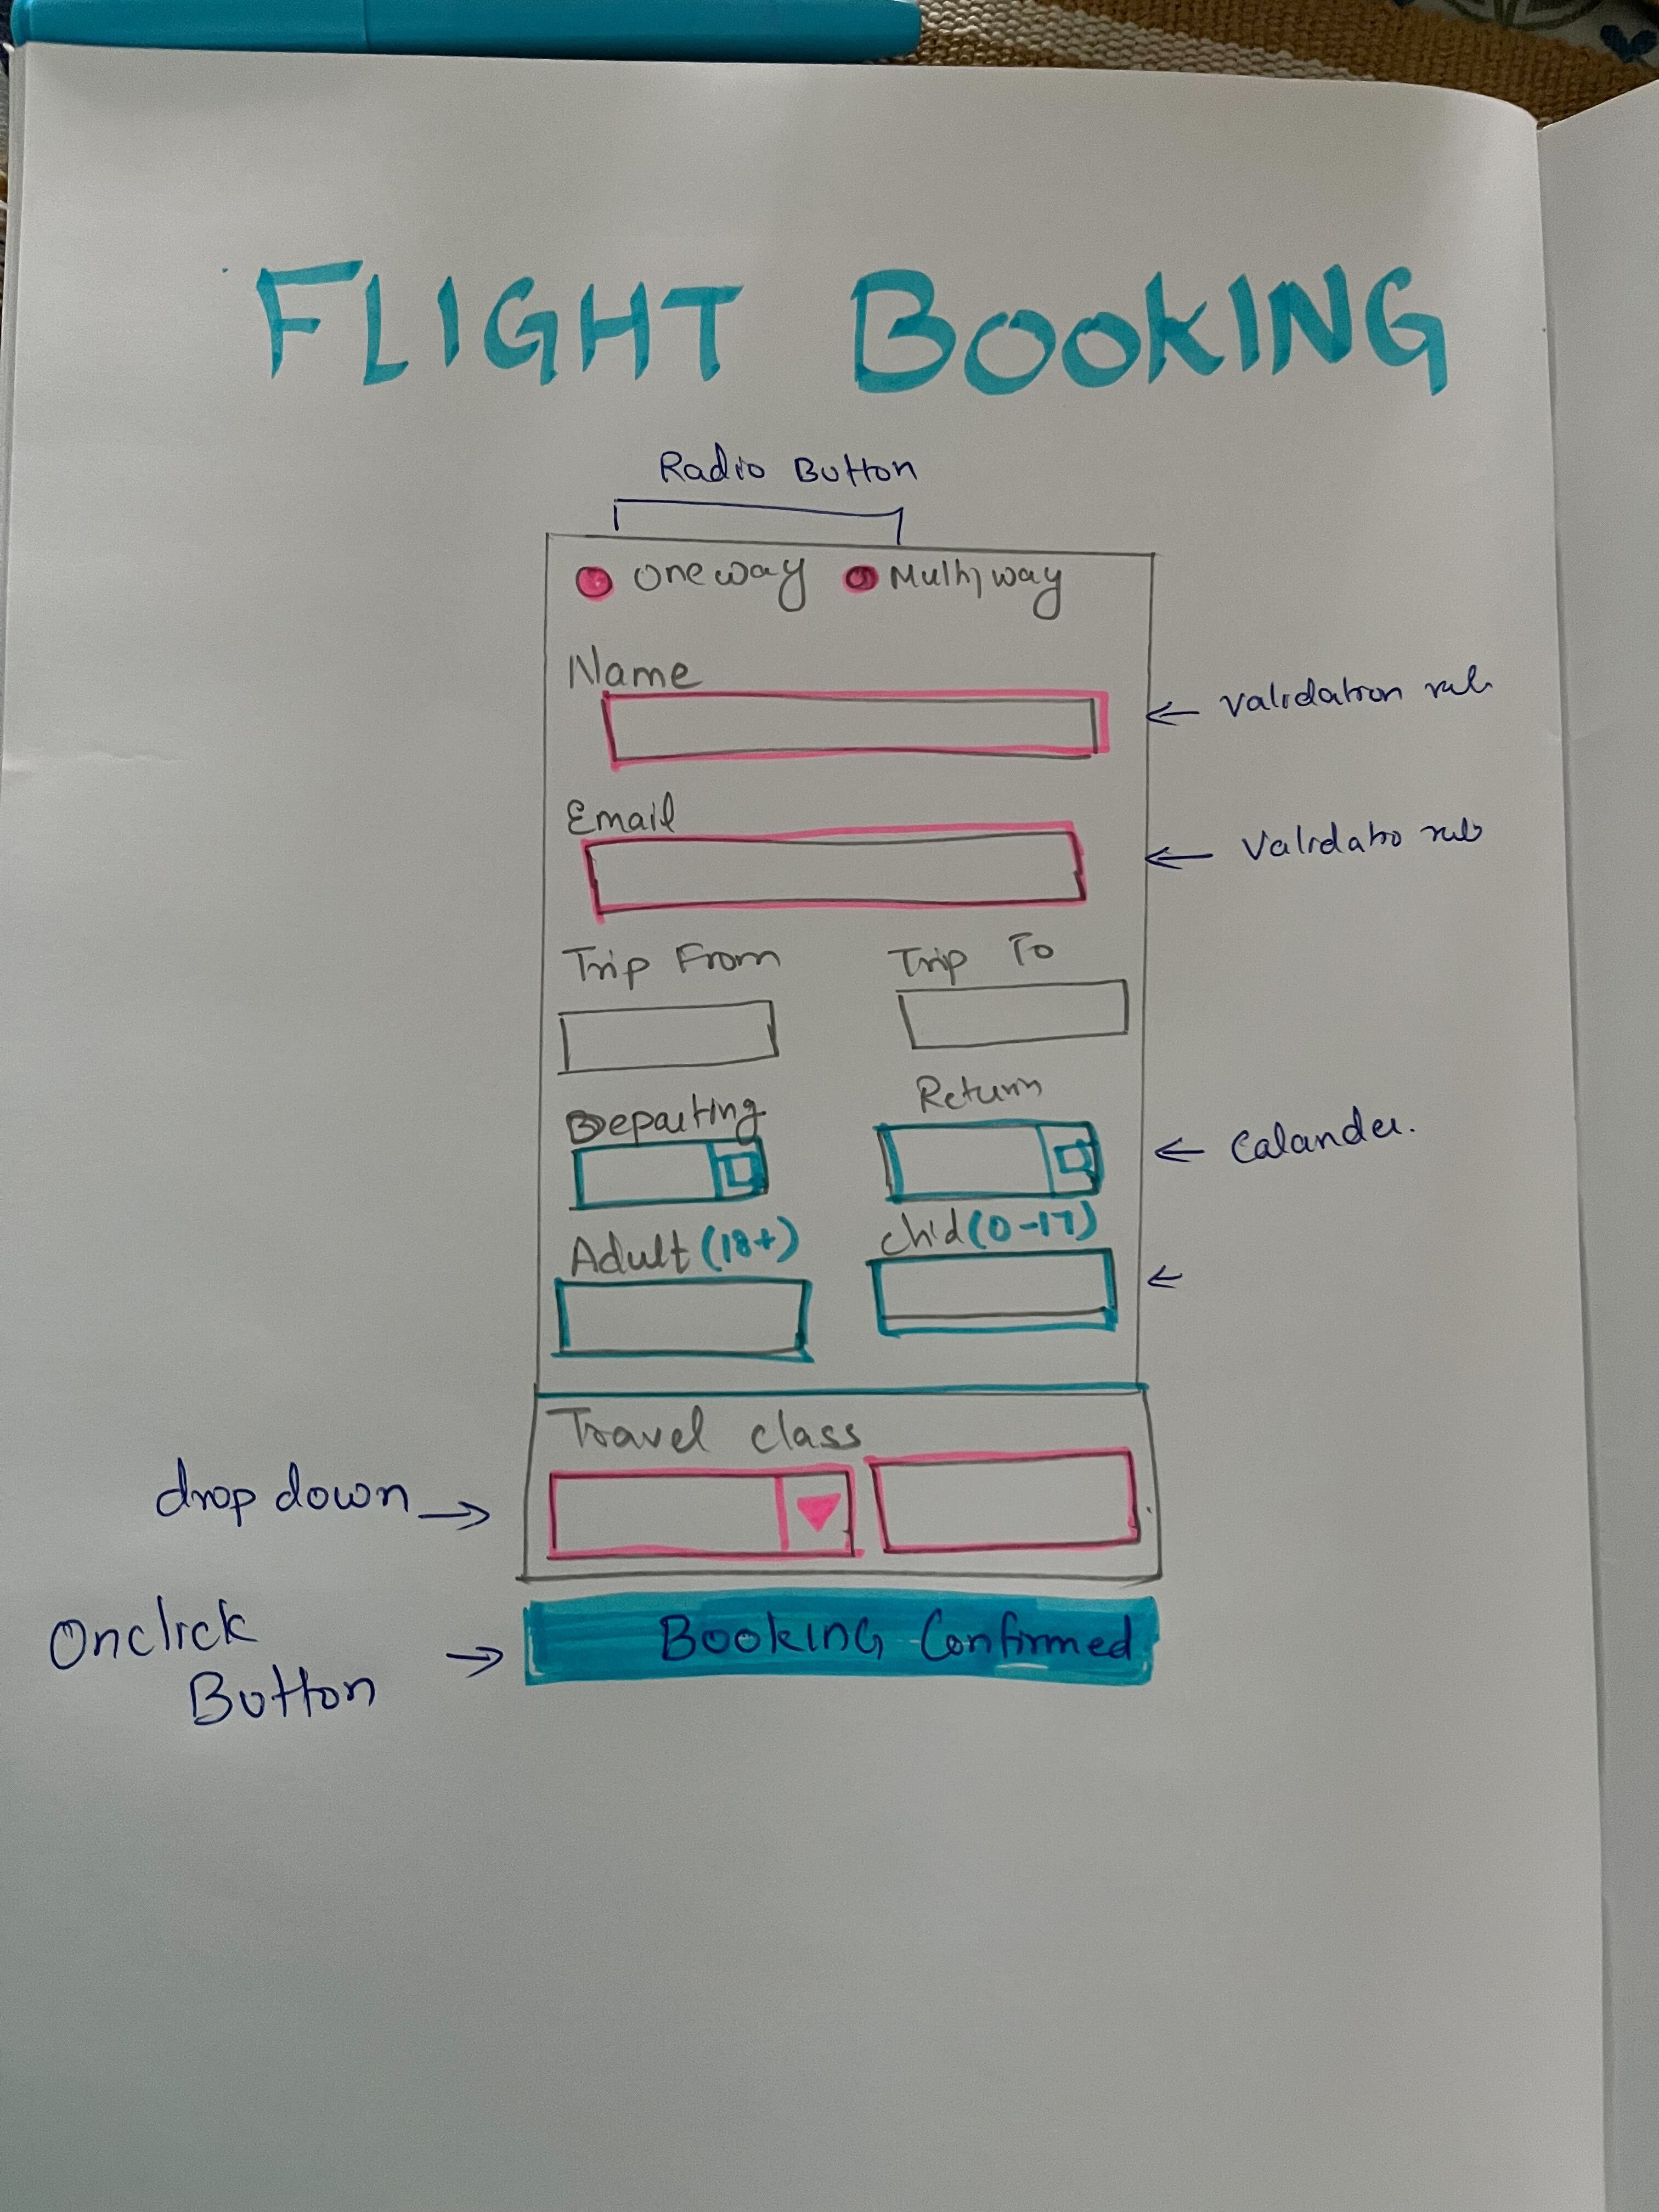 FLIGHT BOOKING
Radio Button
One way Multi way
Name
validation
Email
Trip From Trip To
Departing Return
Calander.
Adult (18+) chid (0-17)
Travel class
drop down
Onclick
Button
BOOKING Confirmed